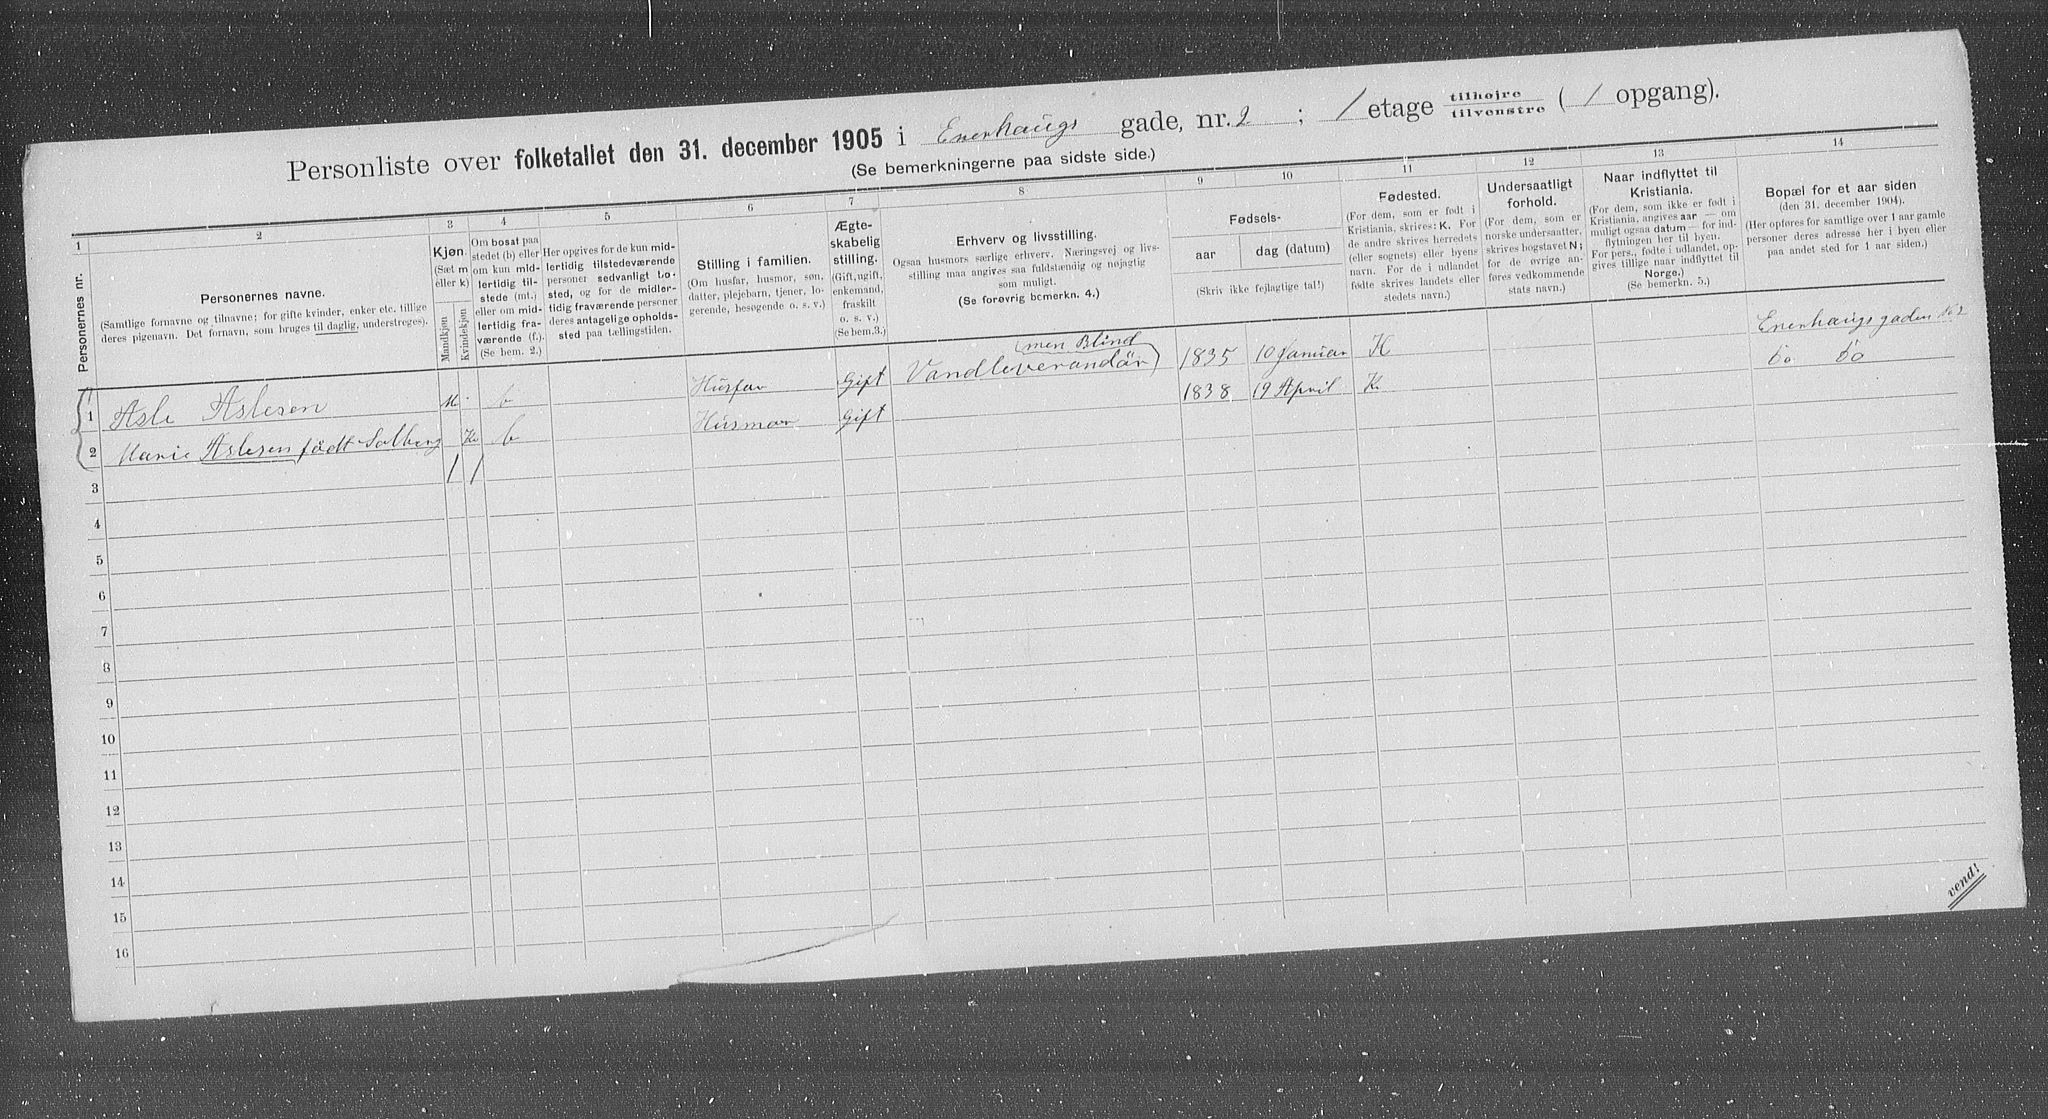 Personliste over folketallet den 31. december 1905 i Enerhaugs gade, nr. 2 ; 1 etage tilhøjre tilvenstre ( 1 opgang).
(Se bemerkningerne paa sidste side.)
1 2 3 4 5 6 7 8 9 10 11 12 13 14
Personernes nr.
Personernes navne.
(Samtlige fornavne og tilnavne; for gifte kvinder, enker etc. tillige
deres pigenavn. Det fornavn, som bruges til daglig, understreges).
Kjøn
(Sæt m
eller k)
Mandkjøn
Kvindekjøn
Om bosat paa
stedet (b) eller
om kun mid-
lertidig til-
stede (mt.)
eller om mid-
lertidig fra-
værende (f.).
(Se bem. 2.)
Her opgives for de kun mid-
lertidig tilstedeværende
personer sedvanligt bo-
sted, og for de midler-
tidig fraværende personer
deres antagelige opholds-
sted paa tællingstiden.
Stilling i familien.
(Om husfar, husmor, søn,
datter, plejebarn, tjener, lo-
gerende, besøgende o. s. v.)
Ægte-
skabelig
stilling.
(Gift, ugift,
enkemand,
fraskilt
o. s. v.)
(Se bem.3.)
Erhverv og livsstilling.
Ogsaa husmors særlige erhverv. Næringsvej og livs-
stilling maa angives saa fuldstændig og nøjagtig
som muligt.
(Se forøvrig bemerkn. 4.)
Fødsels-
aar dag (datum)
(Skriv ikke fejlagtige tal!)
Fødested.
(For dem, som er født i
Kristiania, skrives: K. For
de andre skrives herredets
(eller sognets) eller byens
navn. For de i udlandet
fødte skrives landets eller
stedets navn.)
Undersaatligt
forhold.
(For dem, som er
norske undersaatter,
skrives bogstavet N;
for de øvrige an-
føres vedkommende
stats navn.)
Naar indflyttet til
Kristiania.
(For dem, som ikke er født i
Kristiania, angives aar — om
muligt ogsaa datum — for ind-
flytningen her til byen.
For pers., fødte i udlandet, op-
gives tillige naar indflyttet til
Norge.)
(Se bemerkn. 5.)
Bopæl for et aar siden
(den 31. december 1904).
(Her opføres for samtlige over 1 aar gamle
personer deres adresse her i byen eller
paa andet sted for 1 aar siden.)
1 Asle Aslesen M b Husfar Gift Vandleverandör (men Blind) 1835 10 Januar K Enerhaugsgaden No 2
2 Marie Aslesen födt Solberg Kv b Husmor Gift 1838 19 April K do do
1 1
3
4
5
6
7
8
9
10
11
12
13
14
15
16
vend!